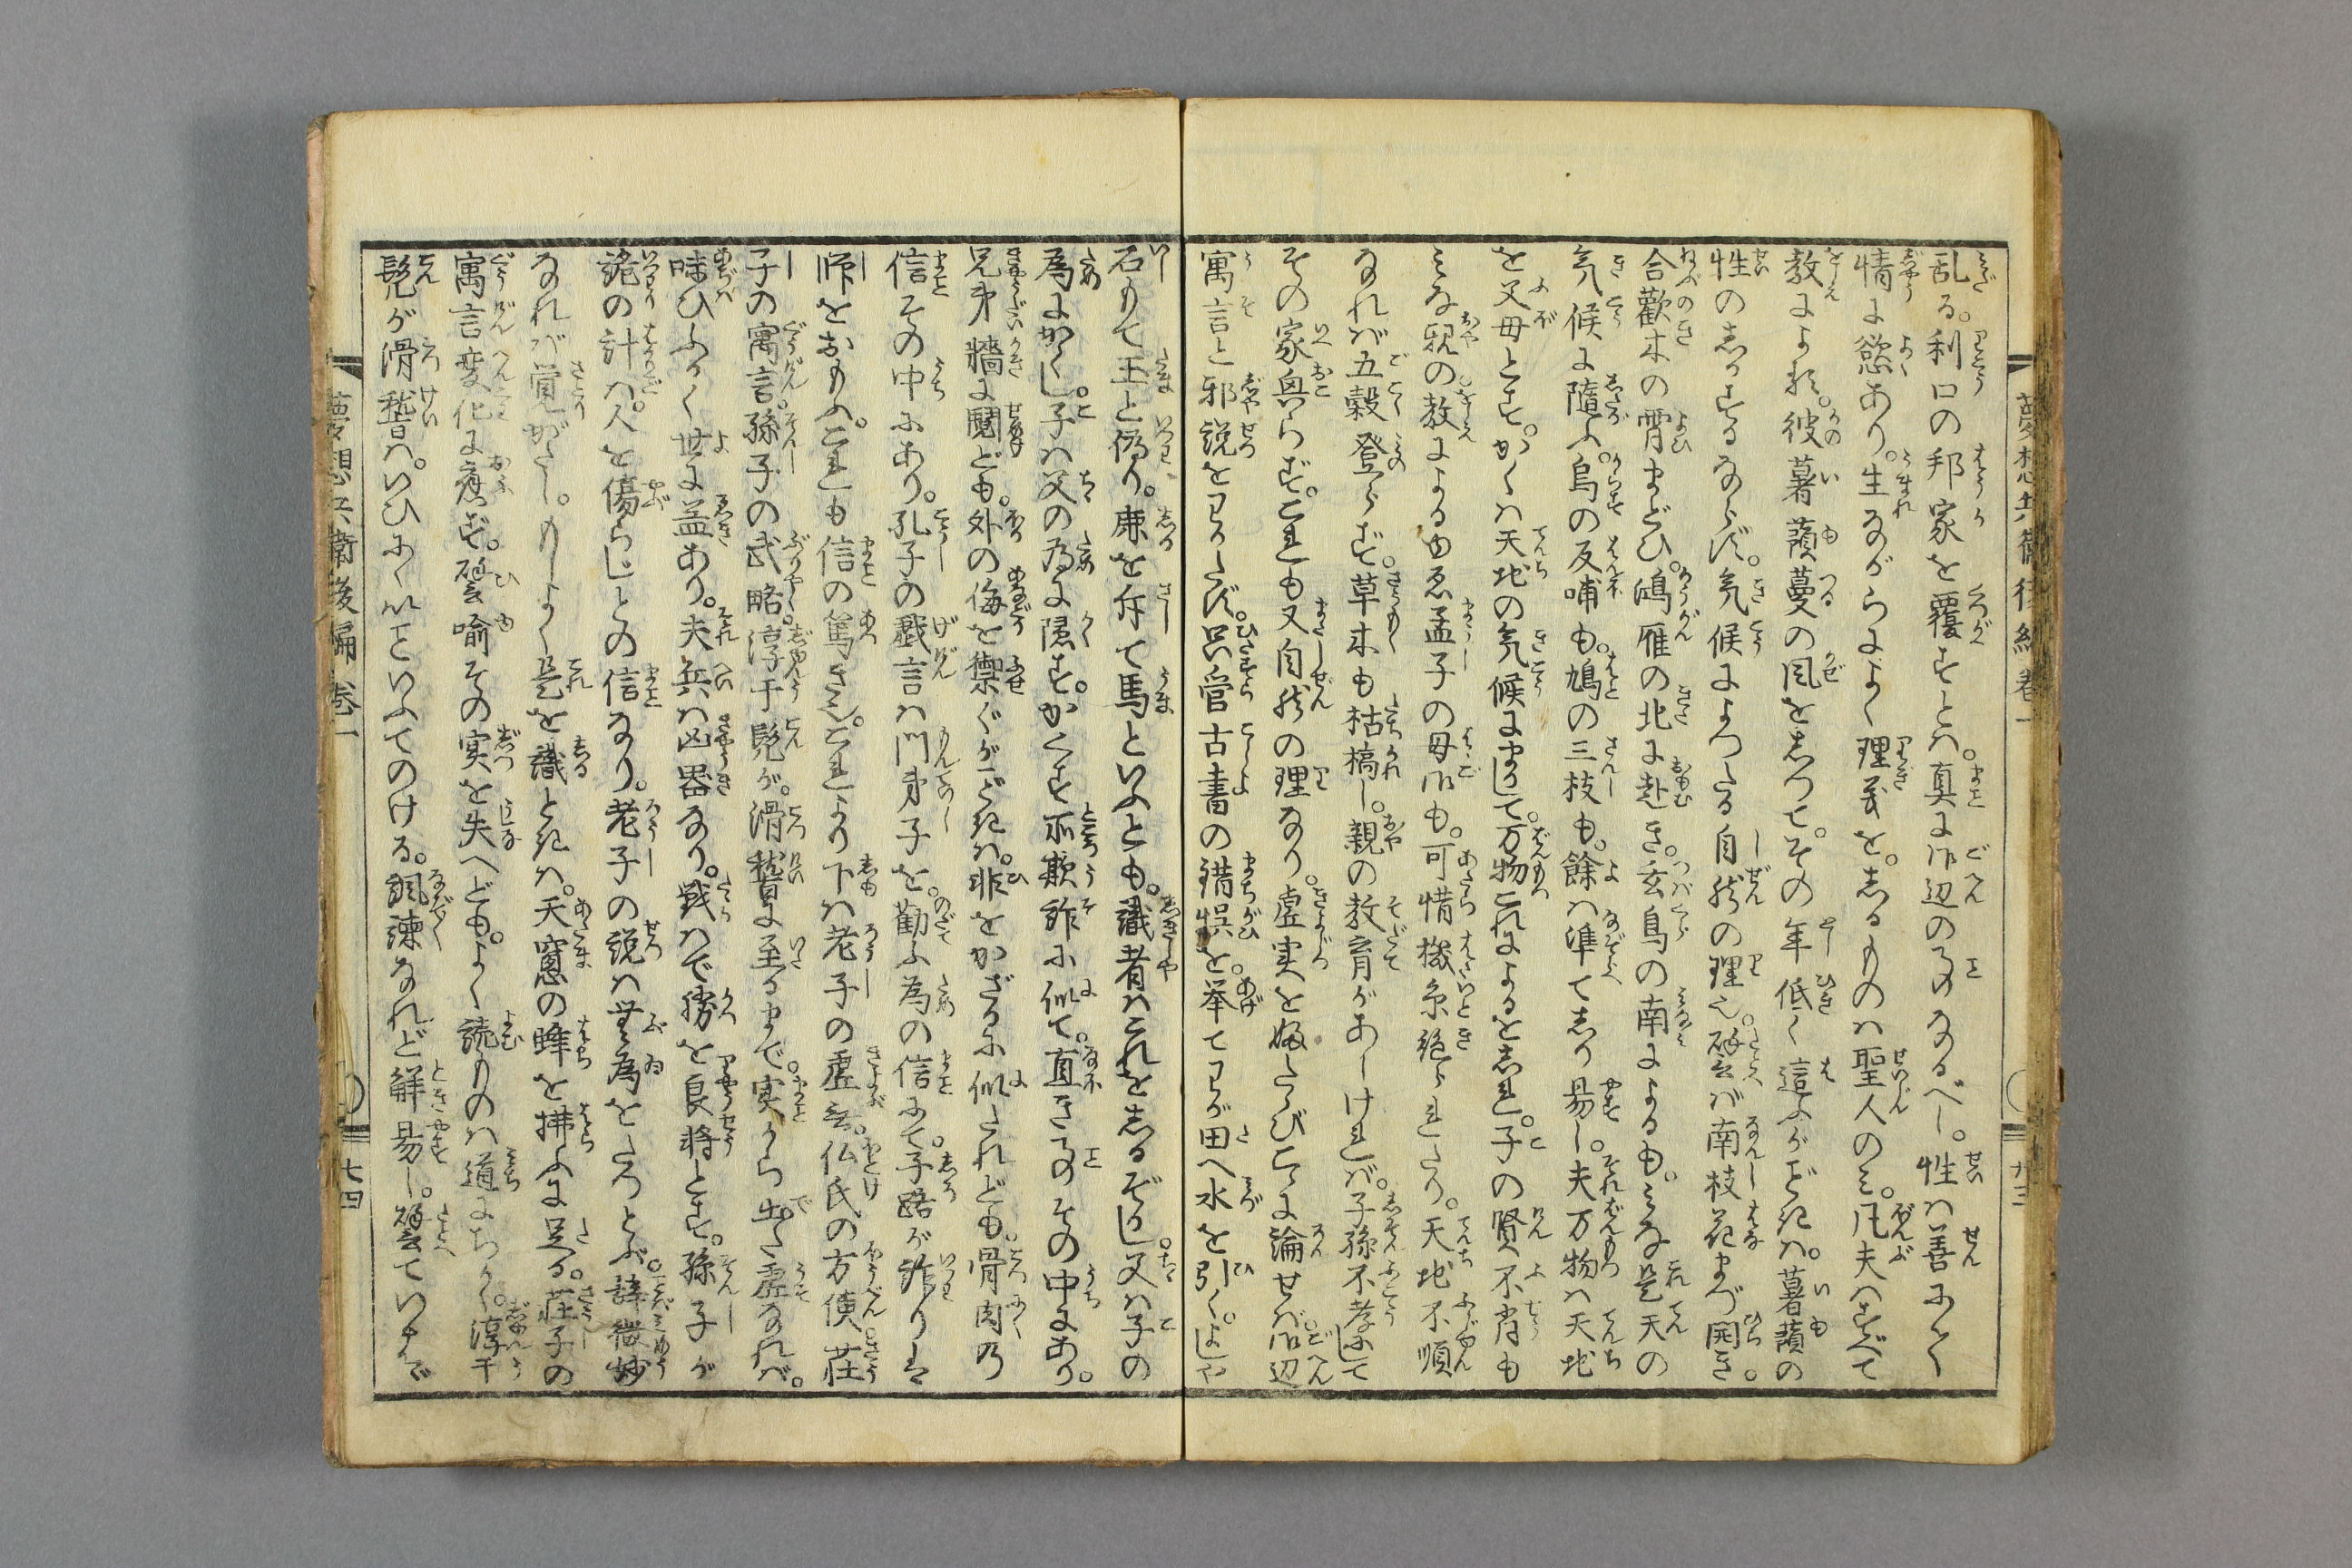 乱る。利口の邦家を覆すとは。真に你辺の事なるべし。性は善にして
情に慾あり。生ながらによく理義を。しるものは聖人のミ。凡夫はすべて
教による。彼薯蕷蔓の風をしつて。その年低く這ふがごときは。薯蕷の
性のしかするならず。気候によつたる自然の理也。譬ば南枝花まづ開き。
合歓木の霄まどひ。鴻雁の北に赴き。玄鳥の南によるも。ミな是天の
気候に随ふ。烏の反哺も。鳩の三枝も。餘は準てしり易し。夫万物は天地
を父母とす。かくは天地の気候にまして。万物これによるをしれ。子の賢不肖も
ミな親の教によるゆゑ孟子の母你も。可惜機糸絶られたり。天地不順
なれば五穀登らず。草木も枯槁し。親の教育があしけれバ。子孫不孝にして
その家興らず。これも又自然の理なり。虚実を婦たらびこゝに論せば。你辺
寓言と邪説をわかたず。只管古書の錯悞を。挙てわが田へ水を引く。よしや
石もて玉と偽り。鹿を斥て馬といふとも。識者はこれをしるぞかし。父は子の
為にかくし。子は父の為に隠す。かくす所欺詐に似て。直き事その中にあり。
兄弟牆に鬩ども。外の侮を禦ぐがごときは。非をかざるに似たれども。骨肉の
信その中にあり。孔子の戯言は門弟子を。勧ふ為の信にて。子路が詐りは
師をおもふ。これも信の篤き也。これより下は老子の虚無。仏氏の方便。荘
子の寓言。孫子の武略。淳于髠が。滑稽に至るまで。実から出た虚なれバ。
味ひふかく世に益あり。夫兵は凶器なり。戦はで勝を良将とす。孫子が
詭の計は。人を傷らじとの信なり。老子の説は無為をたつとぶ。辞微妙
なれバ覚がたし。もしよく是を識ときは。天窓の蜂を拂ふに足る。荘子の
寓言変化に応ず。譬喩その実を失へども。よく読ものは道にちかく。淳于
髠が滑稽は。いひにくいことといふてのける。諷諫なれど解易し。譬ていはゞ
夢想兵衛後編巻一
廿三
夢想兵衛後編 巻一
廿四